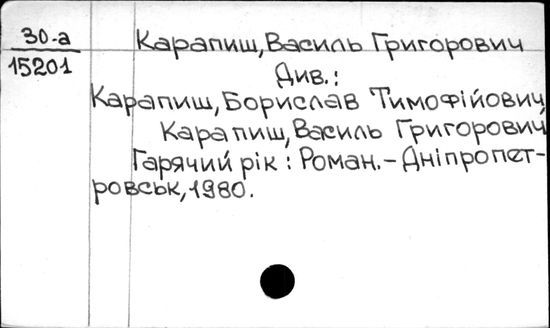 30-а
15201
Карапиш, Василь Григорович
Див.:
Карапиш, Борислав Тимофійович,
Карапиш, Василь Григорович
Гарячий рік : Роман. – Дніпропет-
ровськ, 1980.